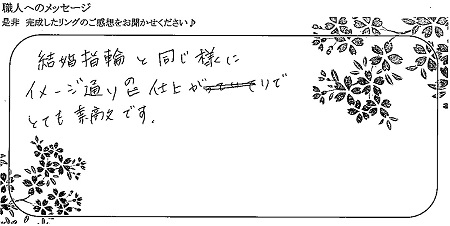 職人へのメッセージ
是非 完成したリングのご感想をお聞かせください♪
結婚指輪と同じ様に
イメージ通りの仕上がりで
とても素敵です。